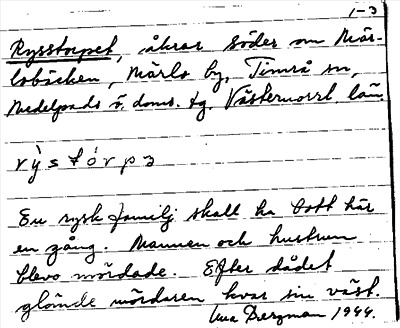 1-3
Rysstorpet, åkrar söder om Mär-
lobäcken, Märlo by, Timrå sn,
Medelpads ö. doms. tg. Västernorrl. län.
rỳstórpɜ
En rysk familj skall ha bott här
en gång. Mannen och hustrun
blevo mördade. Efter dådet
glömde mördaren kvar sin väst.
Bergman 1944.